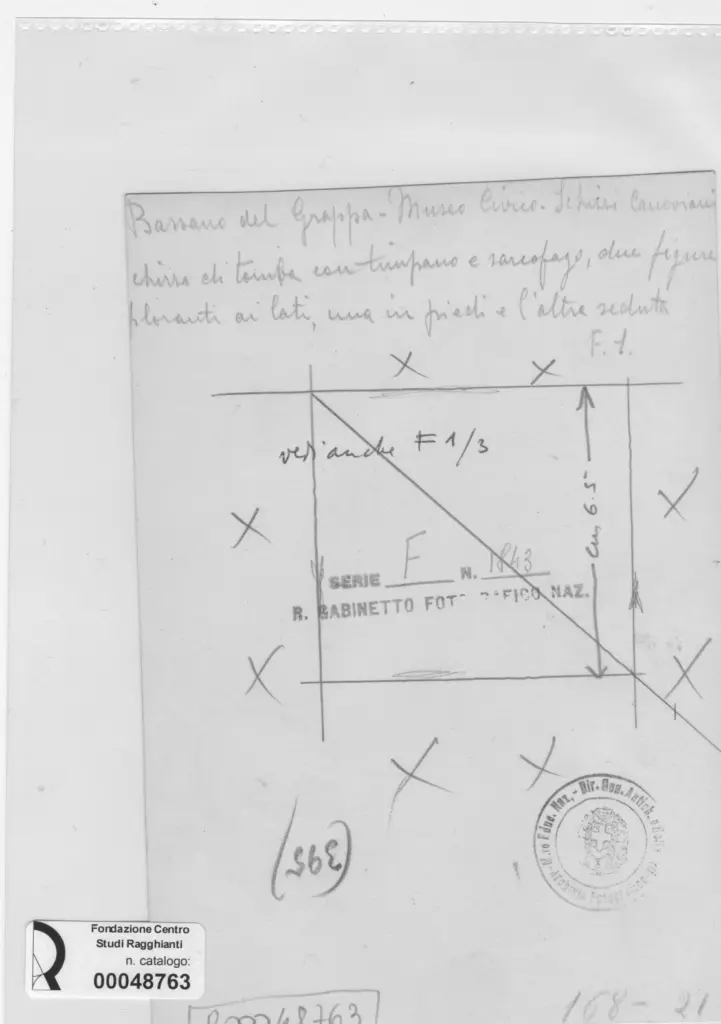 Bassano del Grappa - Museo Civico - Schizzi Canoviani
chizzo di tomba con timpano e sarcofago, due figure
ploranti ai lati, una in piedi e l'altra seduta
F. 1.
vedi anche F 1/3
cm 6.5
SERIE F N. 1843
R. GABINETTO FOTOGRAFICO NAZ.
M.ro Educ. Naz. - Dir. Gen. Antich. e
Archivio
(395)
Fondazione Centro
Studi Ragghianti
n. catalogo:
00048763
00048763
168 - 21